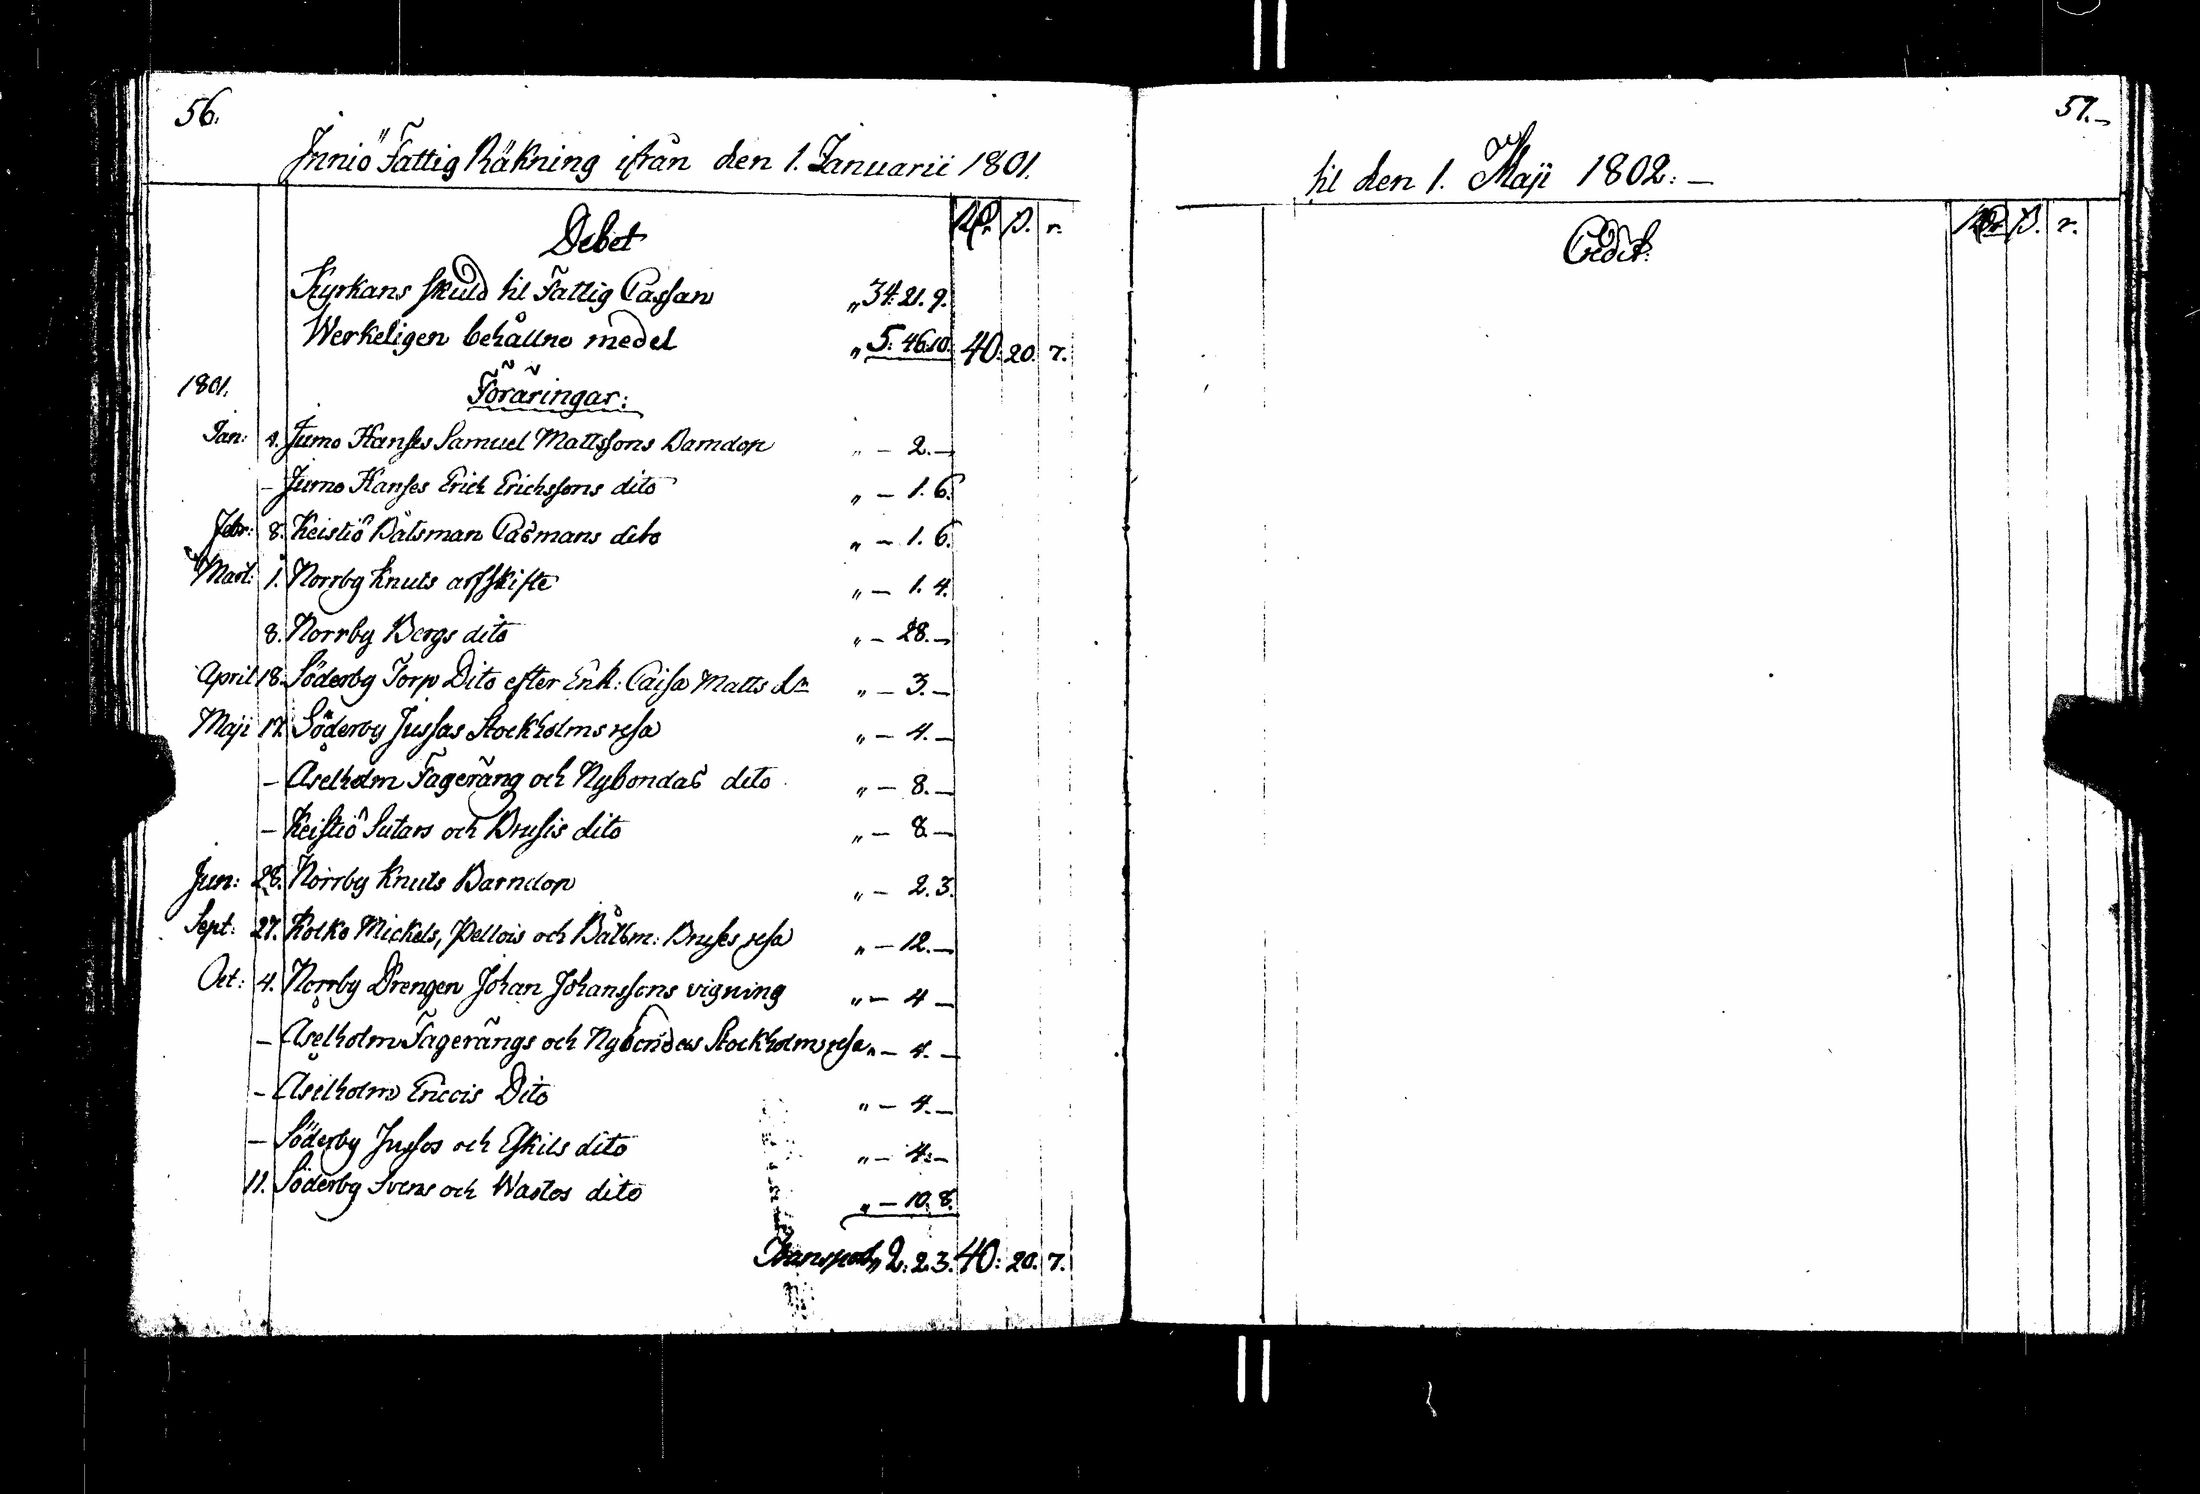 56.
Inniö Fattig Räkning ifrån den 1. Januarii 1801.
Debet
Rdr. s. r.
Kyrkans skuld til Fattig Cassan „ 34. 21. 9.
Werkeligen behållne medel „ 5. 46. 10. 40. 20. 7.
1801. Föräringar:
Jan: 4. Jumo Hanses Samuel Mattssons Barndop „ — 2. —
— Jumo Hanses Erich Erichssons dito „ — 1. 6.
Febr: 8. Keistiö Båtsman dito „ — 1. 6.
Mart: 1. Norrby Knuts arfskifte „ — 1. 4.
8. Norrby Bergs dito „ — 28. —
April 18. Söderby Torp Dito efter Enk: Caisa Matts dr „ — 3. —
Maji 17. Söderby Jussas Stockholms resa „ — 4. —
— Åselholm Fageräng och Nybondas dito „ — 8. —
— Keistiö Sutars och Brusis dito „ — 8. —
Jun: 28. Norrby Knuts Barndop „ — 2. 3.
Sept: 27. Kolko Mickels, Pellois och Båtsm: Bruses resa „ — 12. —
Oct: 4. Norrby Drengen Johan Johanssons vigning „ — 4 —
— Åselholm Fagerängs och Nybondas Stockholms resa „ — 4. —
— Åselholm Ericis Dito „ — 4. —
— Söderby Jussas och Eskils dito „ — 4: —
11. Söderby Svens och dito „ — 10. 8.
Transport „ 2: 2. 3. 40: 20. 7.
57. —
til den 1. Maji 1802: —
Credit:
Rdr. s. r.